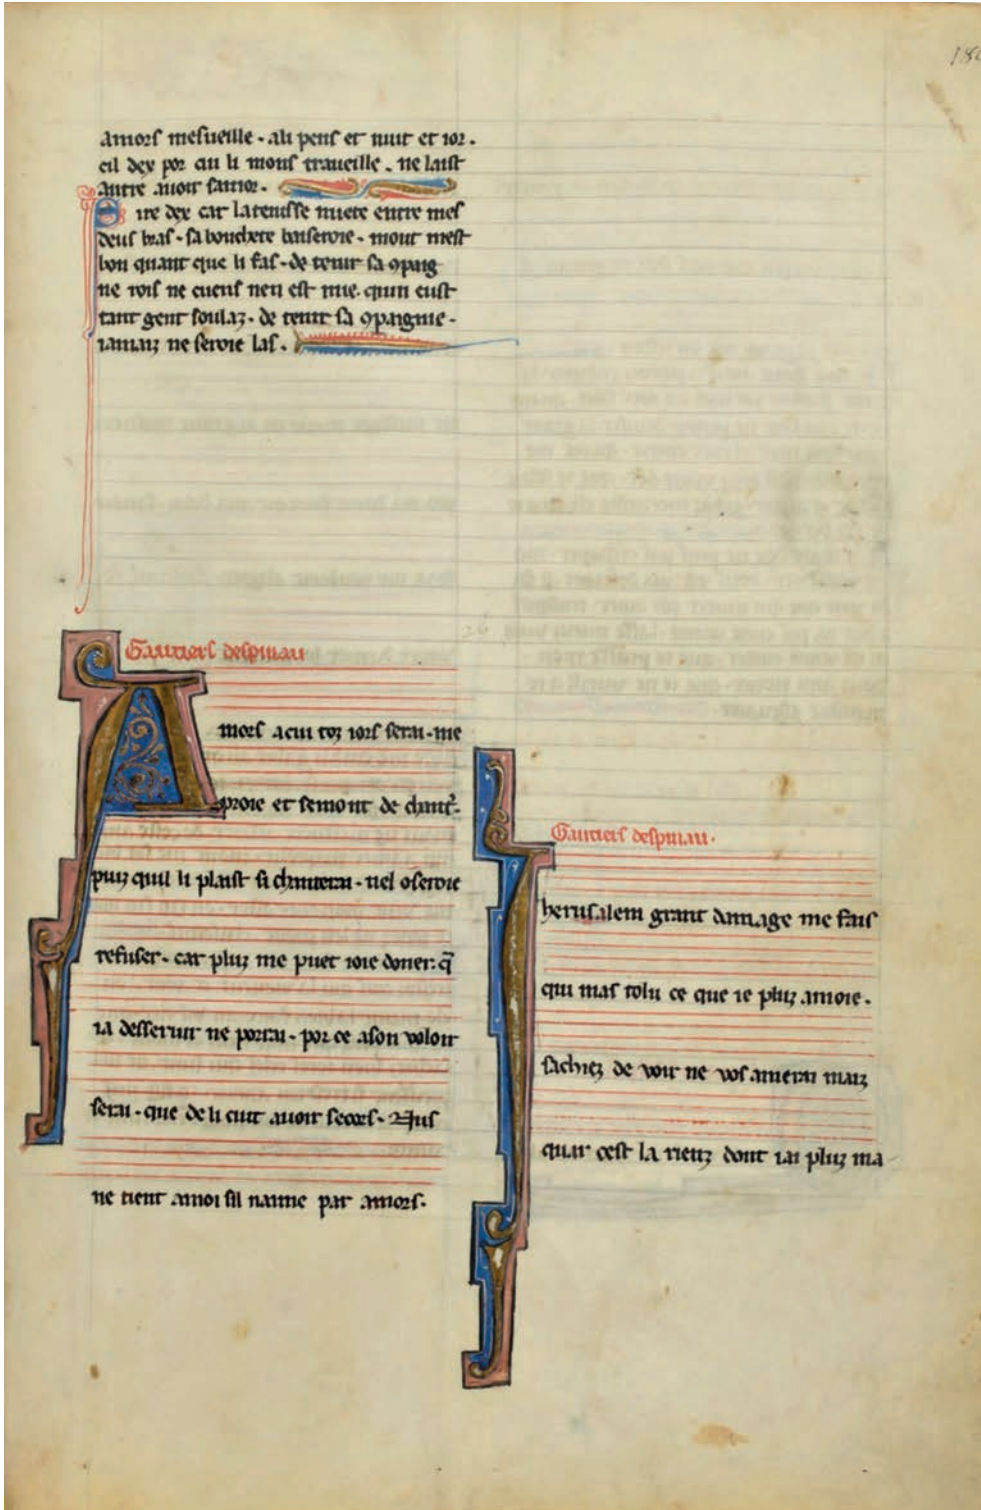 amors mesueille · a li pens et nuit et ior ·
cil dex por cui li mons traueille · ne laist
autre auoir samor ·
Sire dex car la tenisse nuete entre mes
deus bras · sa bouchete baiseroie · mout mest
bon quant que li fas · de tenir sa ꝯpaig
ne rois ne cuens nen est mie · quin eust
tant gent soulaz · de tenir sa ꝯpaignie ·
iamaiz ne seroie las ·
Gautiers despinau
Amors a cui toz iors serai · me
proie et semont de chant̉ ·
puiz quil li plaist si chanterai · nel oseroie
refuser · car pluz me puet ioie doner · q̄
ia desseruir ne porrai · por ce a son voloir
serai · que de li cuit auoir secors · Nus
ne tient a moi sil naime par amors ·
Gautiers despinau ·
Jherusalem grant damage me fais
qui mas tolu ce que ie pluz amoie ·
sachiez de voir ne vos amerai maiz
quar cest la rienz dont iai pluz ma